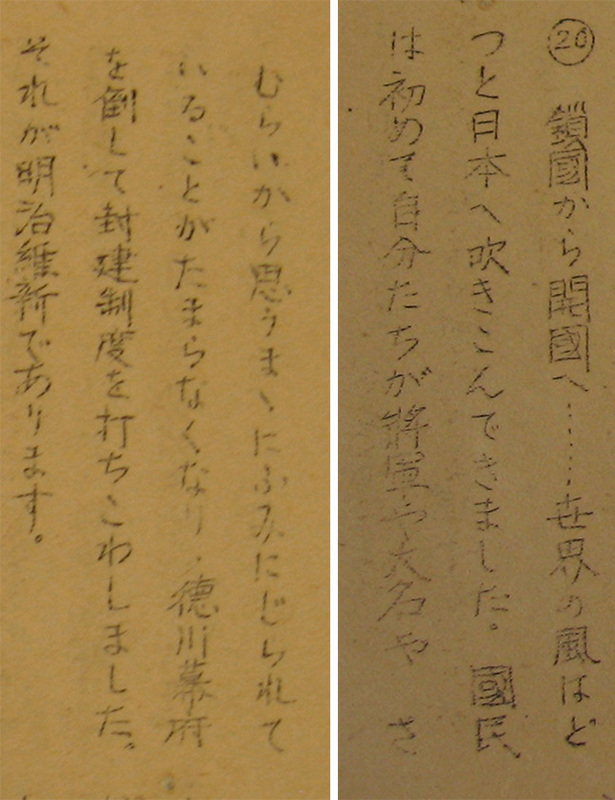 ⑳ 鎖國から開國へ……世界の風はど
つと日本へ吹きこんできました。國民
は初めて自分たちが將軍や大名や さ
むらいから思うまゝにふみにじられて
いることがたまらなくなり、徳川幕府
を倒して封建制度を打ちこわしました。
それが明治維新であります。